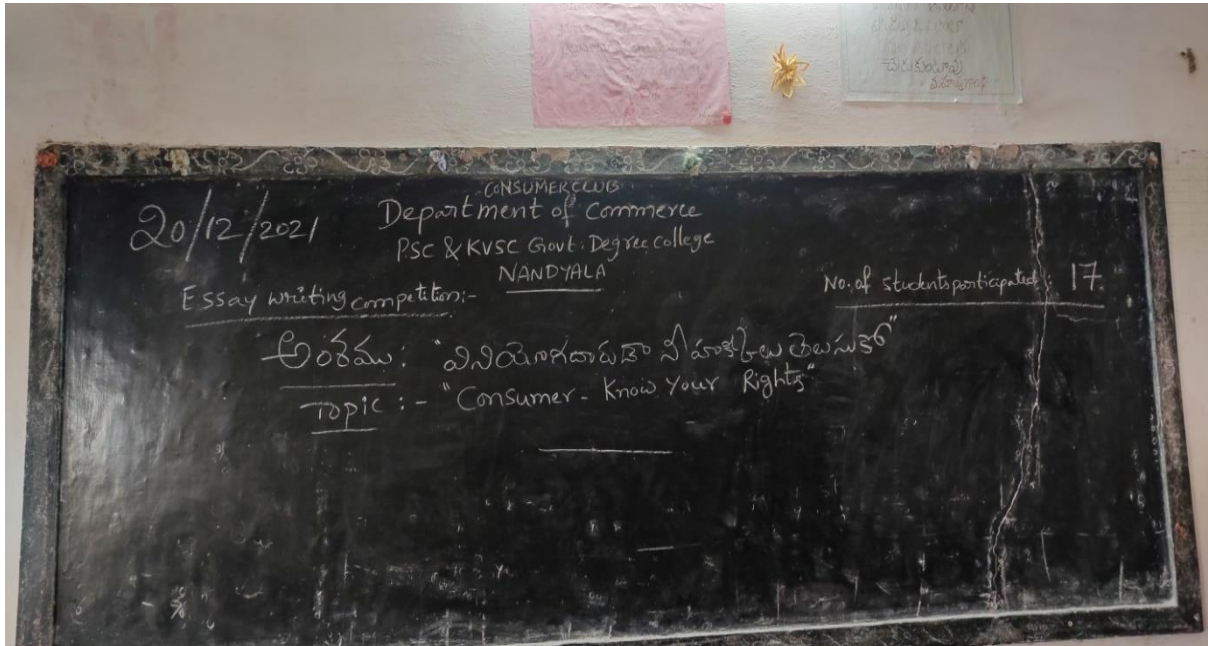 చేరుకుంటావు
CONSUMER CLUB
20/12/2021
Department of Commerce
P.SC & KVSC Govt. Degree college
NANDYALA
Essay writing competition:-
No. of students participated : 17
అంశము : "వినియోగదారుడా నీ హక్కులు తెలుసుకో"
Topic :- "Consumer - Know Your Rights"